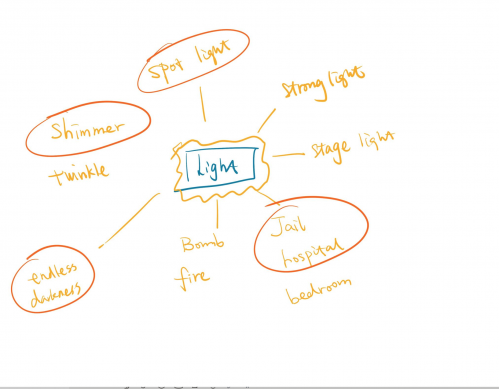 Spot light
Strong light
Shimmer
twinkle
Stage light
Light
Jail
hospital
bedroom
Bomb
fire
endless
darkness